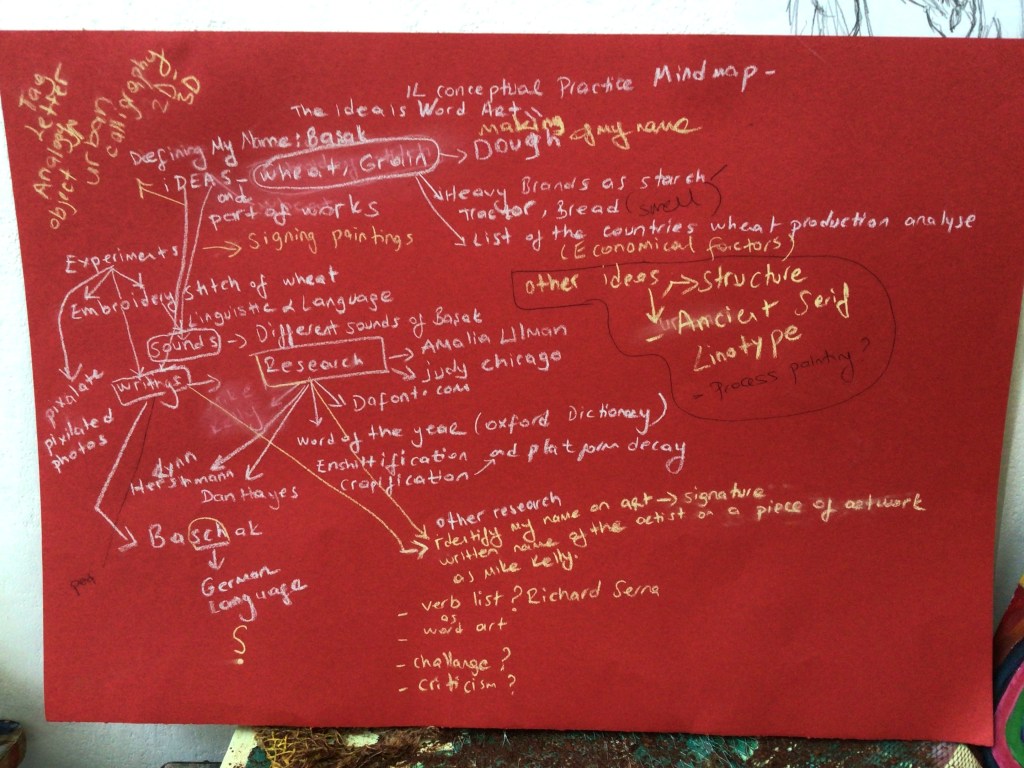 IL conceptual Practice Mindmap -
The idea is Word Art
Tag
Letter
Analogy
object
urban
calligraphy
2D, 3D
Defining My Name: Basak
iDEAS - wheat, Grain
and
part of works
making
DOUGH of my name
Heavy Brands as starch
Tractor, Bread (smell)
List of the countries wheat production analyse
(Economical factors)
Signing paintings
Experiments
Embroidery stitch of wheat
Linguistic & Language
Sounds - Different sounds of Basak
writings
pixalate
pixilated
photos
Research
Amalia Ulman
judy chicago
Dafont.com
word of the year (oxford Dictionary)
Enshittification and platform decay
crapification
Lynn
Hershmann
Dan Hayes
Baschak
German
Language
Ş
other ideas
structure
- Ancient Serif
Linotype
- Process painting?
other research
identify my name on art → signature
written name of the artist on a piece of artwork
as Mike Kelly.
- verb list? Richard Serra
as
- word art
- challange?
- criticism?